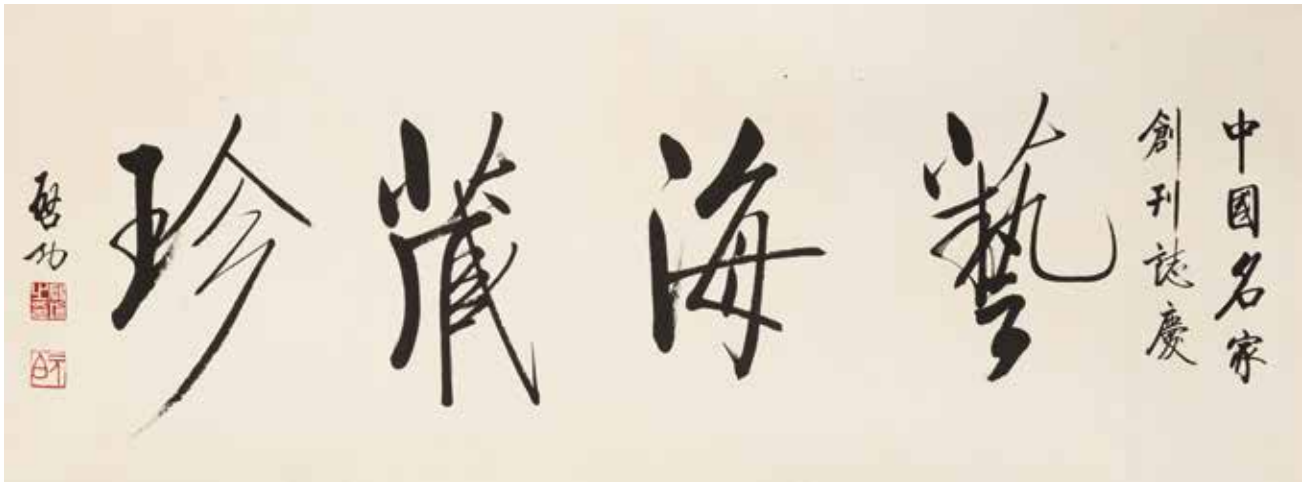 中國名家
創刊誌慶
藝海藏珍
啓功